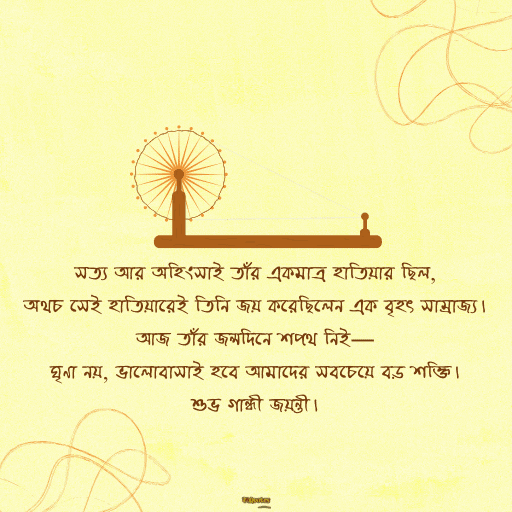 সত্য আর অহিংসাই তাঁর একমাত্র হাতিয়ার ছিল,
অথচ সেই হাতিয়ারেই তিনি জয় করেছিলেন এক বৃহৎ সাম্রাজ্য।
আজ তাঁর জন্মদিনে শপথ নিই—
ঘৃণা নয়, ভালোবাসাই হবে আমাদের সবচেয়ে বড় শক্তি।
শুভ গান্ধী জয়ন্তী।